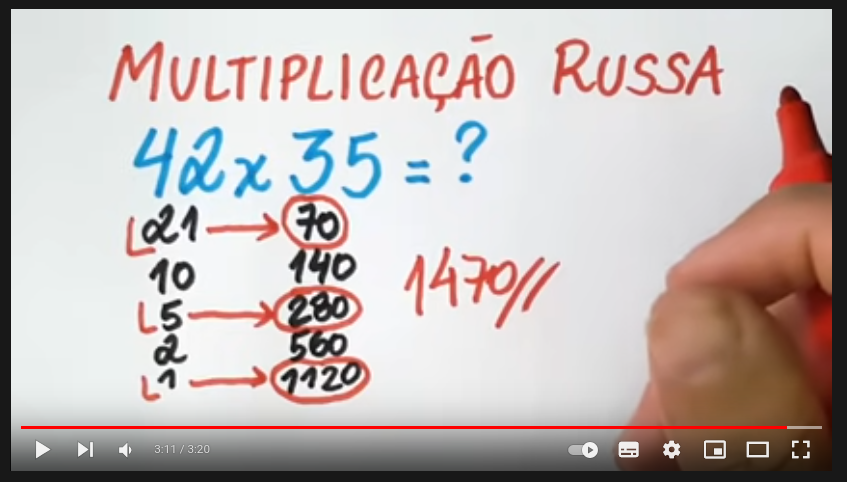 MULTIPLICAÇÃO RUSSA
42 x 35 = ?
21 → 70
10 140
5 → 280
2 560
1 → 1120
1470//
3:11 / 3:20